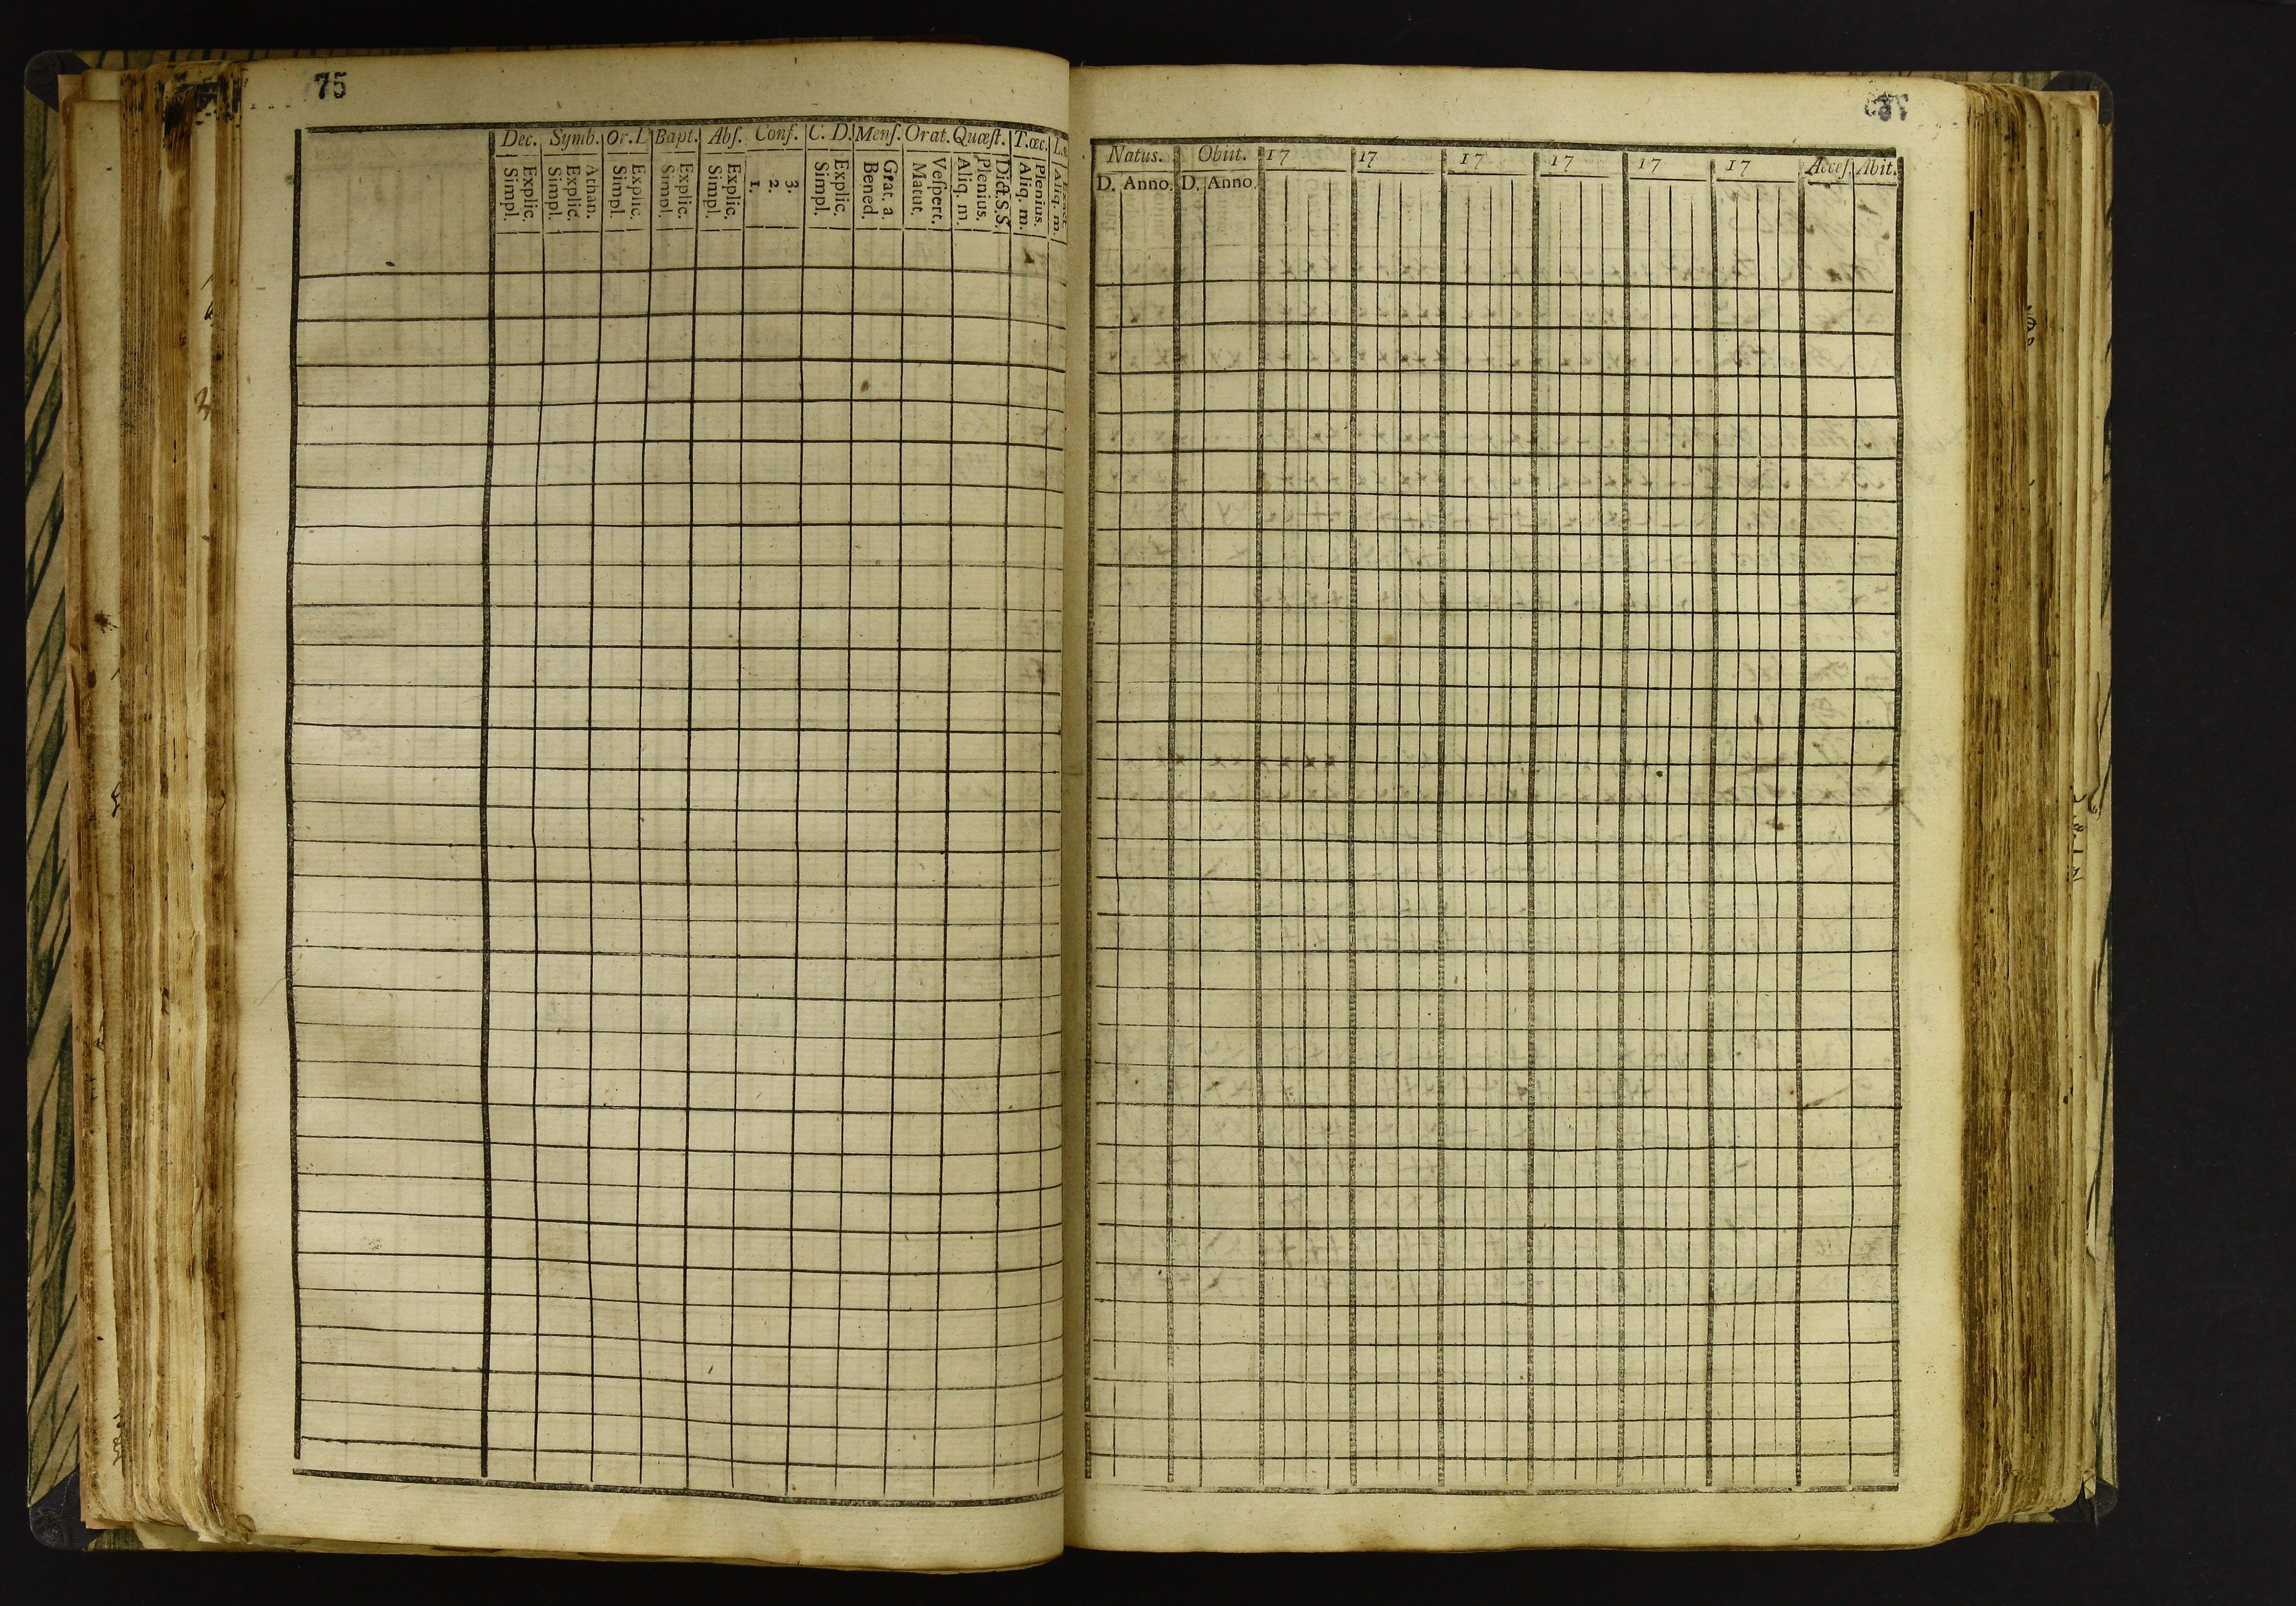 75
Dec. Symb. Or. L Bapt. Abſ. Conf. C. D. Menſ. Orat. Quæſt. T. œc.
Simpl. Explic. Simpl. Explic. Athan. Simpl. Explic. Simpl. Explic. Simpl. Explic. 1. 2. 3. Simpl. Explic. Bened. Grat. a. Matut. Veſpert. Aliq. m. Plenius. Dict. S. S. Aliq. m. Plenius. Aliq. m.
Natus. Obiit. 17 17 17 17 17 17 Acceſ. Abit.
D. Anno. D. Anno.